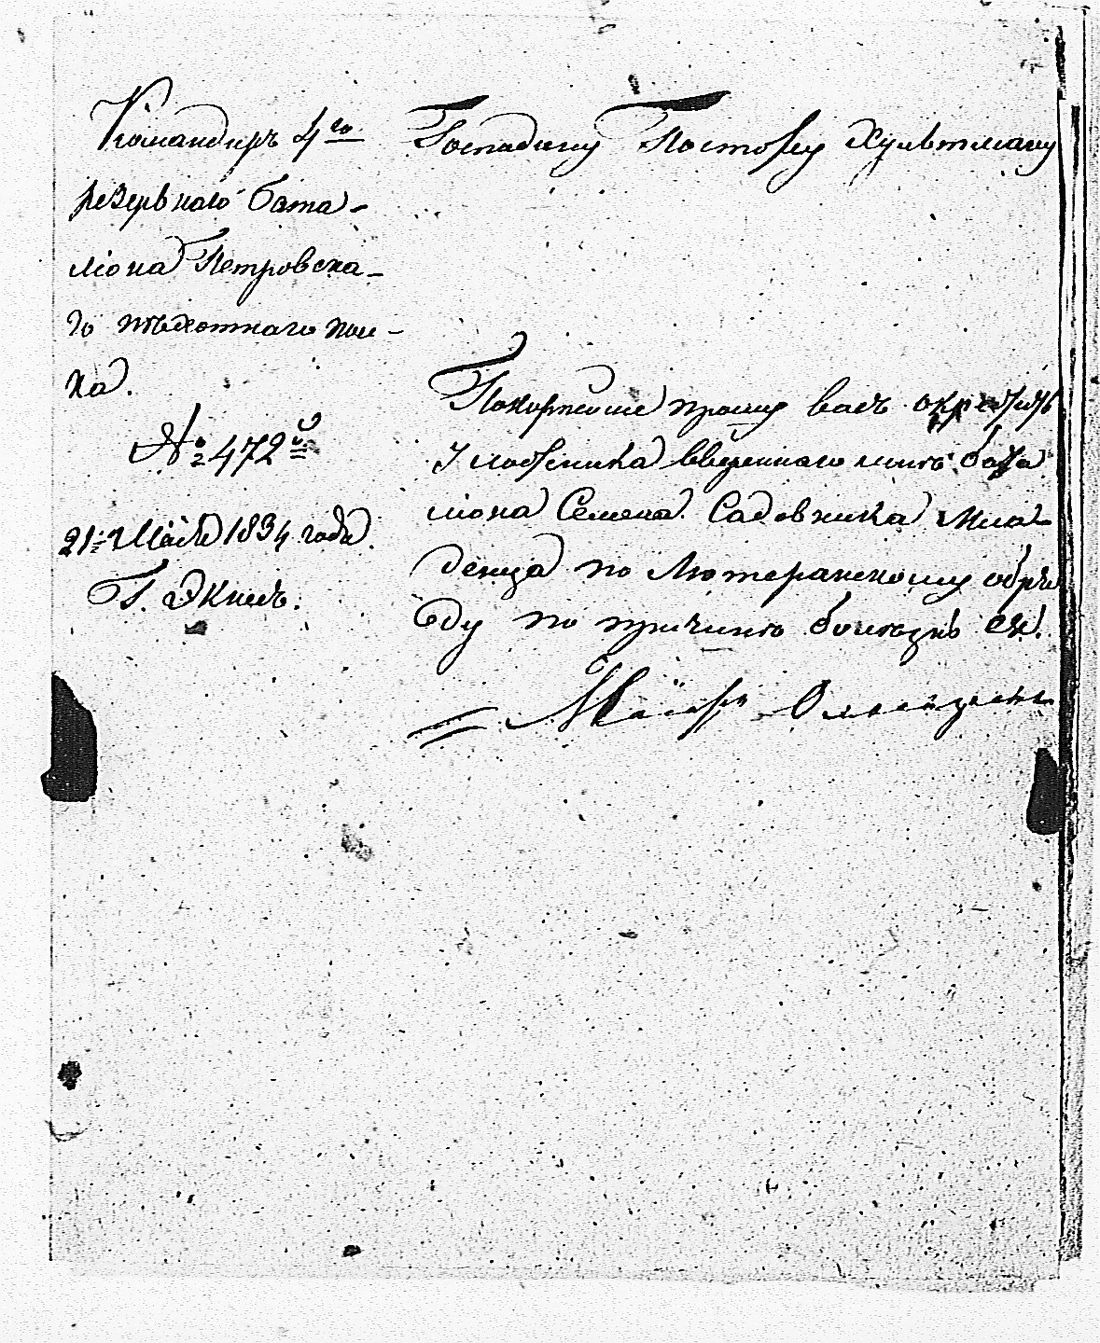 Командиръ 4го
резервнаго Бата-
ліона Петровска-
го пѣхотнаго пол-
ка.
№ 472й
21. Маія 1834 года.
Г. Экнесъ.
Господину Пастору Хультману
Покорнейше прошу васъ окрестить
у мастерника ввереннаго мнѣ бата
ліона Семена Садовника Мла-
денца по Лютеранскому обря
ду по причинѣ болѣзнь ея.
Маіоръ